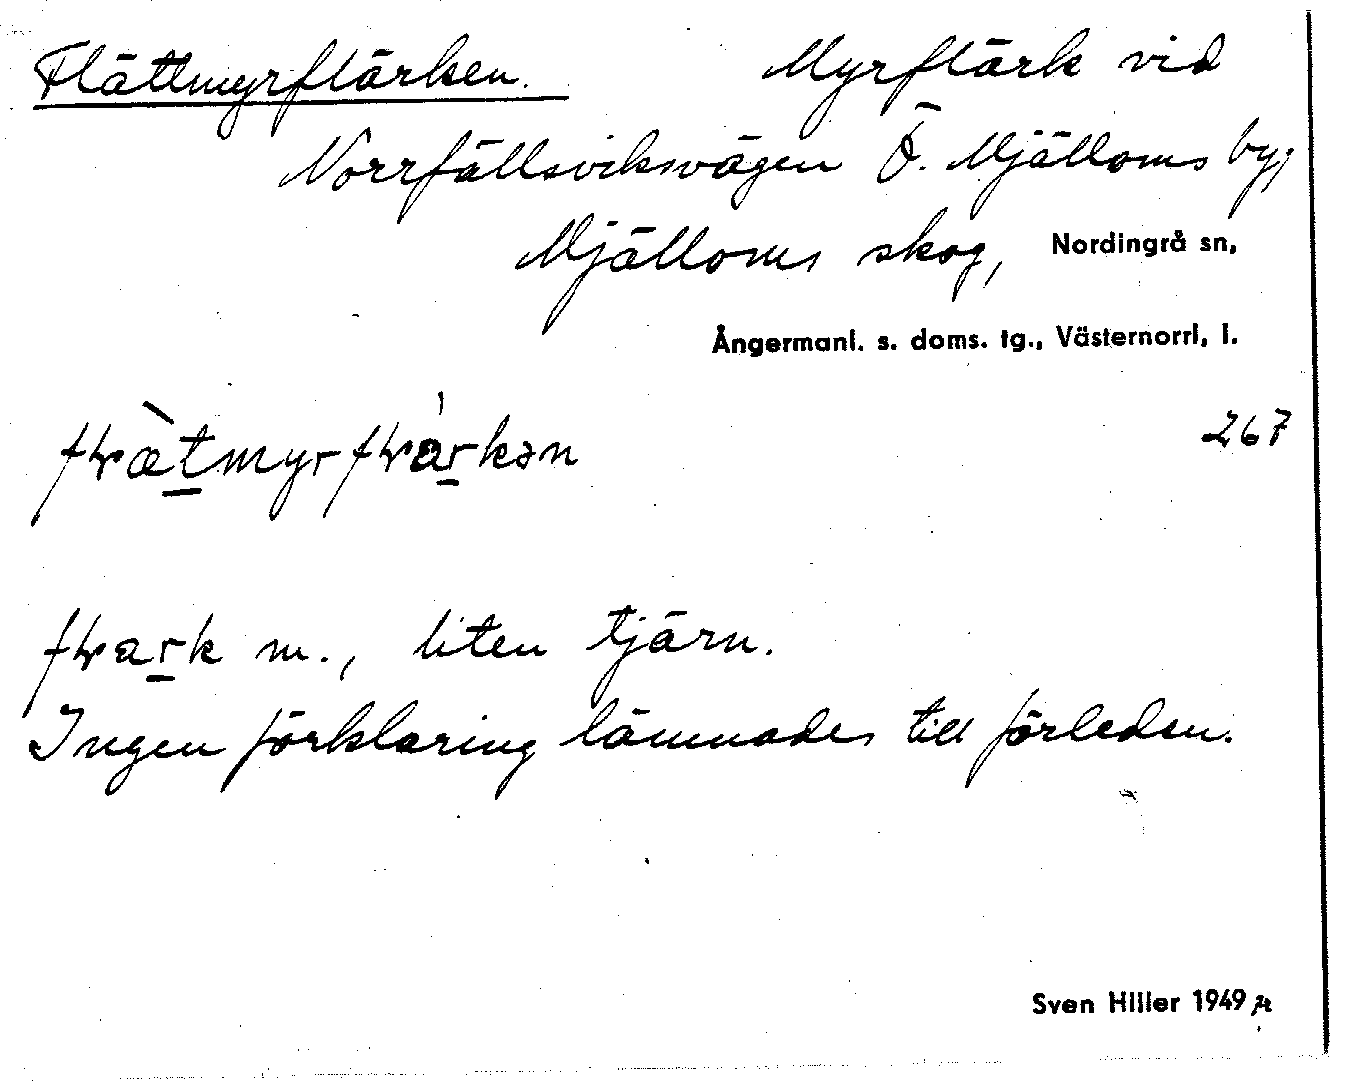 Flättmyrflärken. Myrflärk vid
Norrfällsviksvägen Ö. Mjälloms by,
Mjälloms skog, Nordingrå sn,
Ångermanl. s. doms. tg., Västernorrl, l.
267
m., liten tjärn.
Ingen förklaring lämnades till förleden.
Sven Hiller 1949